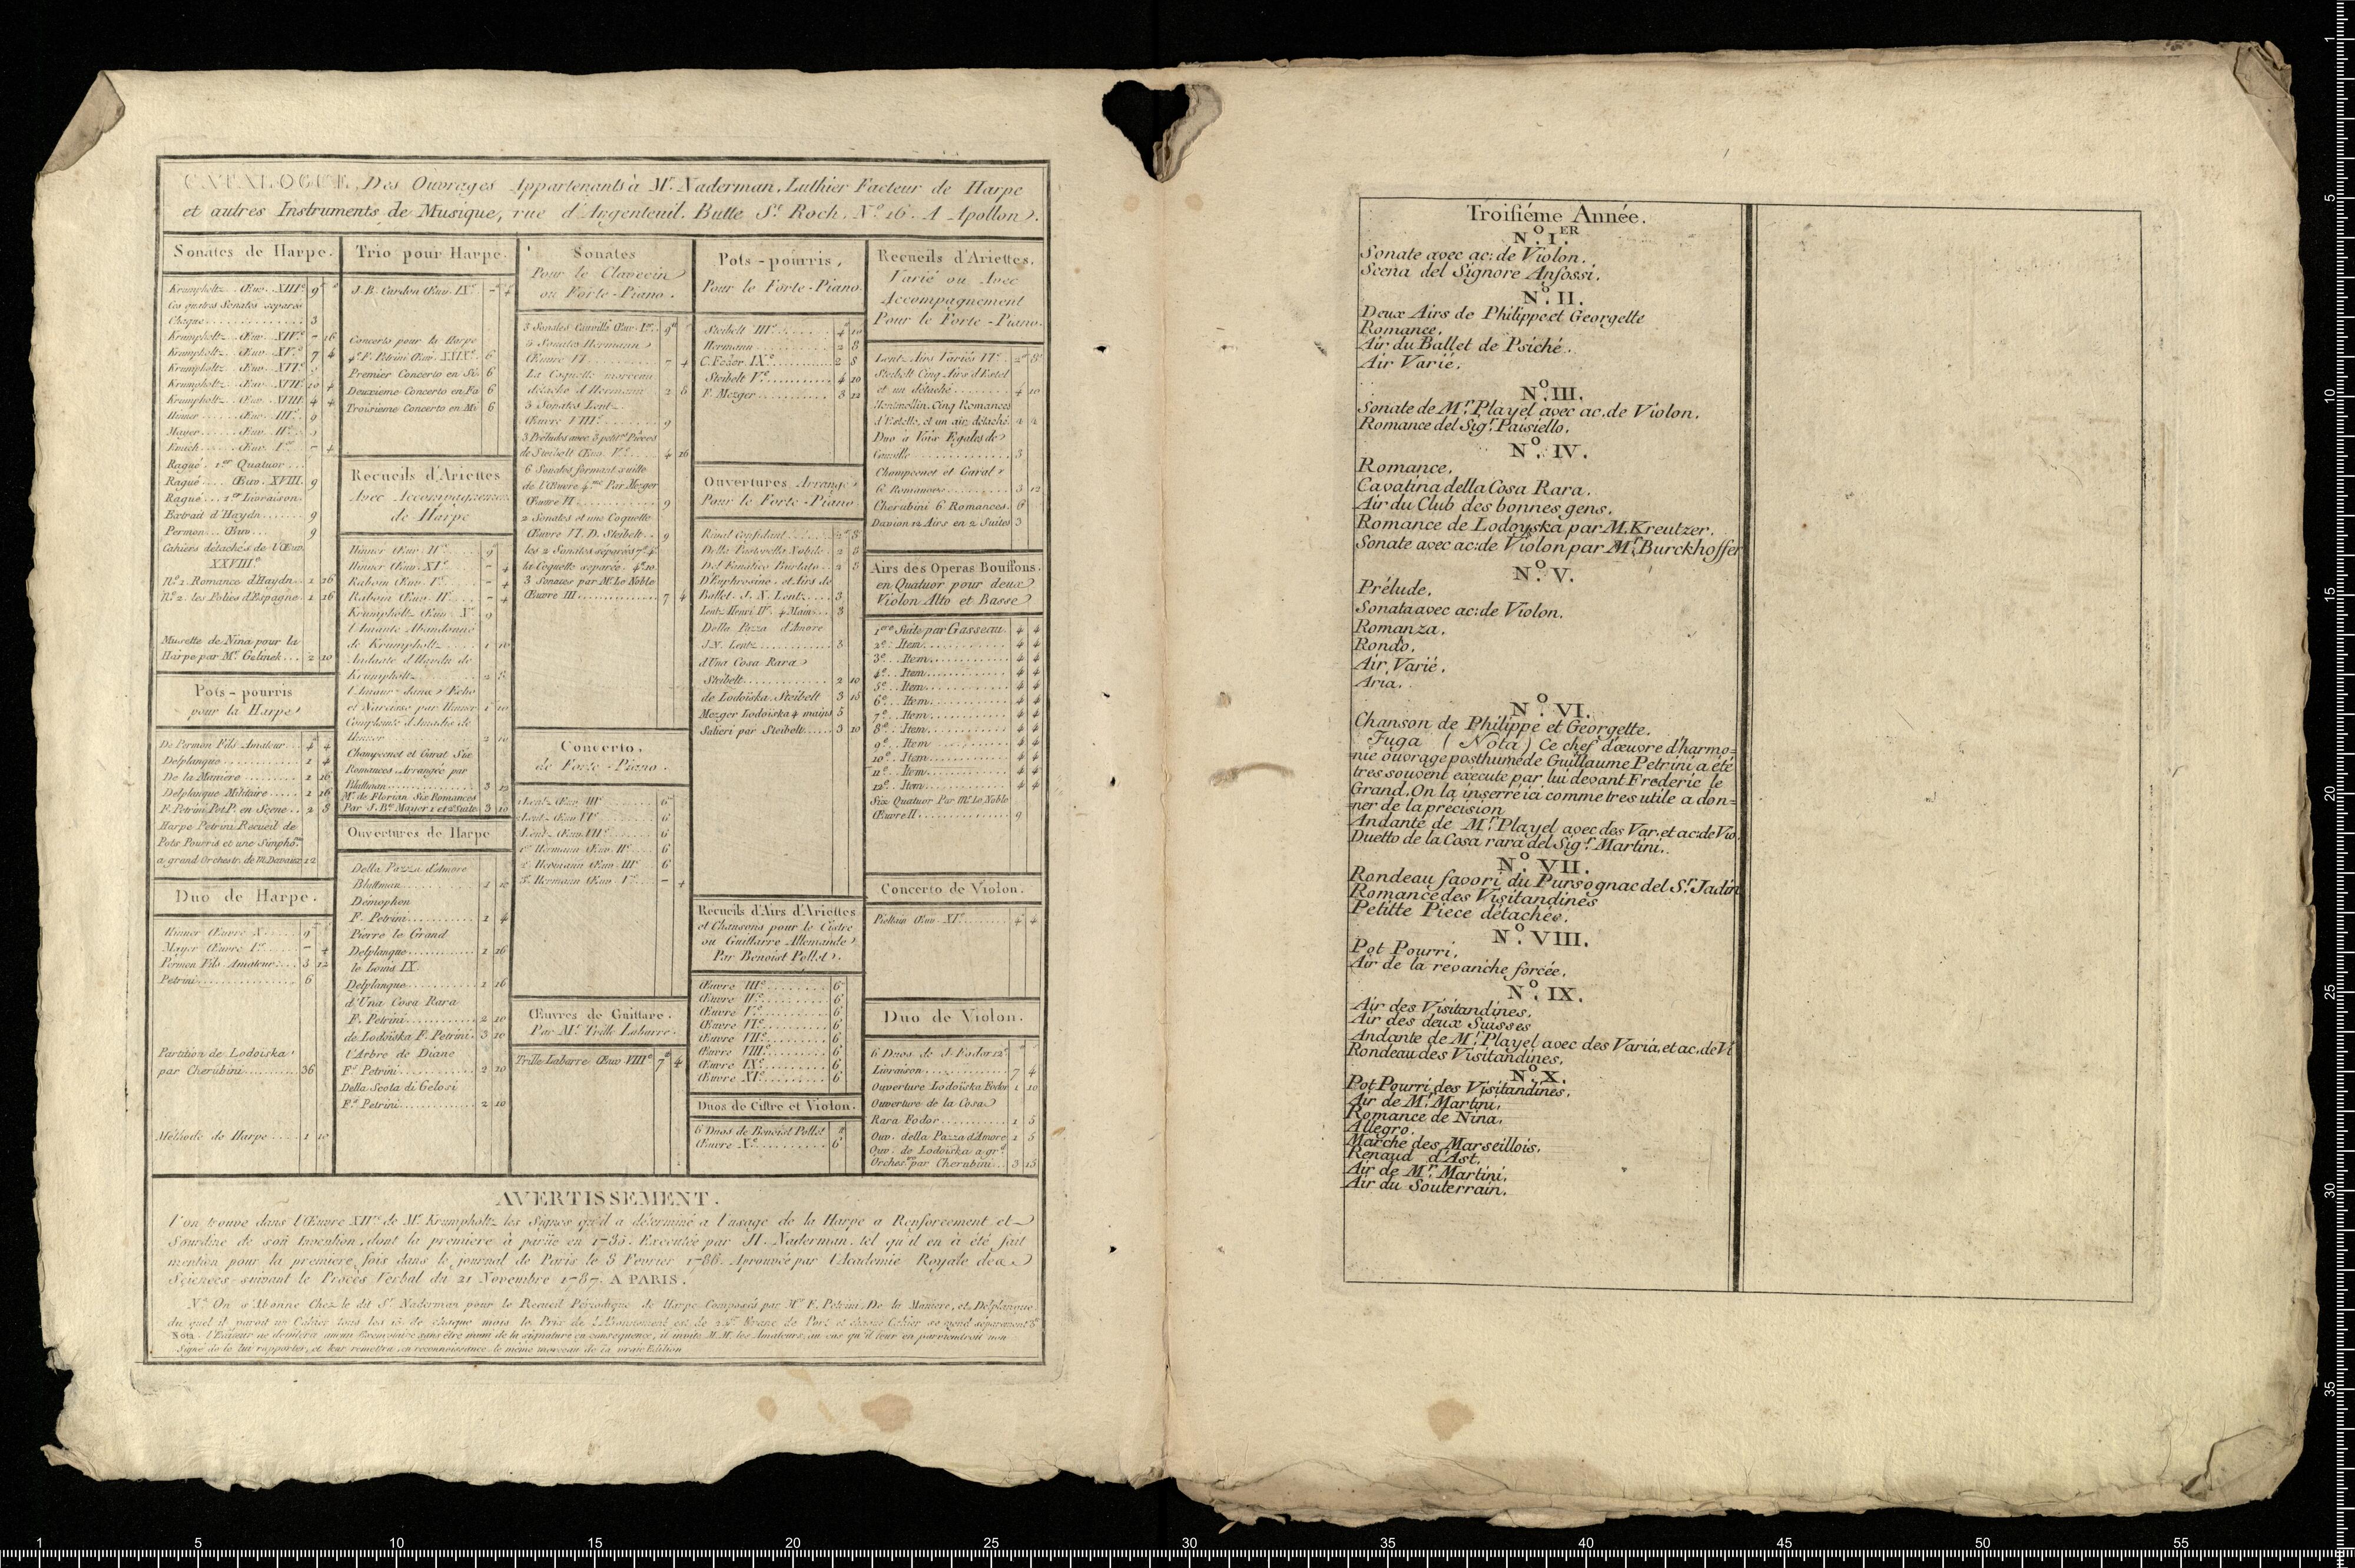 CATALOGUE, Des Ouvrages Appartenants à Mr. Naderman, Luthier Facteur de Harpe
et autres Instruments de Musique, rue d'Argenteuil. Butte St. Roch, No. 16. A Apollon.
Sonates de Harpe.
Krumpholtz.. Œuv. XIIIe. 9
Ces quatres Sonates separés
Chaque............ 3
Krumpholtz.. Œuv. XIVe. - 16
Krumpholtz.. Œuv. XVe. 7 4
Krumpholtz.. Œuv. XVIe.
Krumpholtz.. Œuv. XVIIe. 10 4
Krumpholtz.. Œuv. XVIII. 4 4
Hinner...... Œuv. IIIe. 9
Mayer...... Œuv. IIe.
Emich...... Œuv. Ier. - 4
Ragué. 1er Quatuor...
Ragué.... Œuv. XVIII. 9
Ragué... 1er Livraison.
Extrait d'Haydn...... 9
Permon... Œuv... 9
Cahiers détachés de l'Œuv.
XXVIIIe.
No. 1. Romance d'Haydn.. 1 16
No. 2. les Folies d'Espagne. 1 16
Musette de Nina pour la
Harpe par Mr. Gelinek... 2 10
Pots-pourris
pour la Harpe
De Permon Fils Amateur... 4 4
Delplanque............ 1 4
De la Maniere......... 1 16
Delplanque Militaire..... 1 16
F. Petrini Pot P. en Scene.. 2 8
Harpe Petrini Recueil de
Pots Pourris et une Simpho.
a grand Orchestr. de M. Davaux 12
Duo de Harpe.
Hinner Œuvre X.... 9
Mayer Œuvre Ier.... - 4
Permon Fils Amateur... 3 12
Petrini............... 6
Partition de Lodoiska
par Cherubini.......... 36
Méthode de Harpe... 1 10
Trio pour Harpe.
J. B. Cardon Œuv. IXe. - 4
Concerto pour la Harpe
4e F. Petrini Œuv. XXIXe. 6
Premier Concerto en Si 6
Deuxieme Concerto en Fa 6
Troisieme Concerto en Mi 6
Recueils d'Ariettes
Avec Accompagnemen
de Harpe
Hinner Œuv. IIe. 9
Hinner Œuv. XIe. - 4
Raboin Œuv. Ie. - 4
Raboin Œuv. IIe. - 4
Krumpholtz Œuv. Xe. 9
l'Amante Abandonné
de Krumpholtz.... 1 10
Andante d'Haydn de
Krumpholtz......... 2 8
l'Amour dans Echo
et Narcisse par Hinner 1 10
Complainte d'Amadis de
Hinner............ 2 10
Champeenet et Garat Six
Romances Arrangée par
Blattman............ 3 12
Mr. de Florian Six Romances
Par J. Bte. Mayer 1 et 2e Suite 3 10
Ouvertures de Harpe
Della Pazza d'Amore
Blattman........... 1 12
Demophon
F. Petrini........... 1 4
Pierre le Grand
Delplanque.......... 1 16
le Louis IX.
Delplanque.......... 1 16
d'Una Cosa Rara
F. Petrini.......... 2 10
de Lodoïska F. Petrini. 3 10
l'Arbre de Diane
F. Petrini............ 2 10
Della Scola di Gelosi
F. Petrini............ 2 10
Sonates
Pour le Clavecin
ou Forte-Piano.
3 Sonates Cauville Œuv. Ier. 9
3 Sonates Hermann
Œuvre VI........ - 4
La Coquette morceau
détaché d'Hermann... 2 8
3 Sonates Lentz
Œuvre VIIIe........ 9
3 Préludes avec 3 petites Pieces
de Steibelt Œuv. Ve.... 4 16
6 Sonates formant suitte
de l'Œuvre 4me. Par Mezger
Œuvre VI........... 9
2 Sonates et une Coquette
Œuvre VI. D. Steibelt.. 9
les 2 Sonates separés 7. 4.
la Coquette separée. 4. 10.
3 Sonates par Mr. Le Noble
Œuvre III........... 7 4
Concerto,
de Forte-Piano.
Lentz Œuv. IIIe...... 6
Lentz Œuv. VIe...... 6
Lentz Œuv. VIIe...... 6
1er Hermann Œuv. IIe. 6
2e Hermann Œuv. IIIe 6
3e. Hermann Œuv. Ve. - 4
Œuvres de Guittare.
Par Mr. Trille Labarre.
Trille Labarre Œuv VIIIe 7 4
Pots-pourris,
Pour le Forte-Piano.
Steibelt IIIe......... 4 10
Hermann............ 2 8
C. Fodor IXe......... 2 8
Steibelt Ve........... 4 10
F. Mezger........... 3 12
Ouvertures Arrangé
Pour le Forte-Piano
Rival Confident....... 2 8
Della Pastorella Nobile.. 2 8
Del Fanatico Burlato.. 2 8
D'Euphrosine, et Airs de
Ballet. J. N. Lentz.... 3
Lentz Henri IV. 4 Mains... 3
Della Pazza d'Amore
J. N. Lentz............ 3
d'Una Cosa Rara
Steibelt............ 2 10
de Lodoïska. Steibelt 3 15
Mezger Lodoïska 4 mains 5
Salieri par Steibelt..... 3 10
Recueils d'Airs d'Ariettes
et Chansons pour le Cistre
ou Guittarre Allemande
Par Benoist Pollet.
Œuvre IIIe......... 6
Œuvre IVe......... 6
Œuvre Ve......... 6
Œuvre VIe......... 6
Œuvre VIIe......... 6
Œuvre VIIIe......... 6
Œuvre IXe......... 6
Œuvre XIe......... 6
Duos de Cistre et Violon.
6 Duos de Benoist Pollet
Œuvre Xe.......... 6
Recueils d'Ariettes,
Varié ou Avec
Accompagnement
Pour le Forte-Piano.
Lentz Airs Variés VIe.. 2 8
Steibelt Cinq Airs d'Estel
et un détaché......... 4 10
Cinq Romances
d'Estelle, et un air détaché.
Duo à Voix Egales de
3
Champeenet et Garat
6 Romances......... 3 12
Cherubini 6 Romances. 6
Davion 12 Airs en 2 Suites 3
Airs des Operas Bouffons.
en Quatuor pour deux
Violon Alto et Basse
1ere Suite par Gasseau. 4 4
2e. Item............ 4 4
3e. Item............ 4 4
4e. Item............ 4 4
5e. Item............ 4 4
6e. Item............ 4 4
7e. Item............ 4 4
8e. Item............ 4 4
9e. Item............ 4 4
10e. Item............ 4 4
11e. Item............ 4 4
12e. Item............ 4 4
Six Quatuor Par Mr. Le Noble
Œuvre II............ 9
Concerto de Violon.
Pieltain Œuv. XIe. 4 4
Duo de Violon.
6 Duos de J. Fodor 12e.
Livraison........... 7 4
Ouverture Lodoïska Fodor 1 10
Ouverture de la Cosa
Rara Fodor......... 1 5
Ouv. della Pazza d'Amore 1 5
Ouv. de Lodoïska a gr.
Orches. par Cherubini.. 3 15
AVERTISSEMENT.
l'on trouve dans l'Œuvre XIVe. de Mr. Krumpholtz les Signes qu'il a déterminé a l'usage de la Harpe a Renforcement et
Sourdine de son Invention, dont la premiere à parüe en 1785. Executée par H. Naderman. tel qu'il en à été fait
mention pour la premiere fois dans le journal de Paris le 8 Fevrier 1786. Aprouvée par l'Academie Royale des
Sciences suivant le Procès Verbal du 21 Novembre 1787. A PARIS.
Na. On s'Abonne Chez le dit Sr. Naderman pour le Recueil Périodique de Harpe Composés par Mrs. F. Petrini, De la Maniere, et Delplanque.
du quel il paroit un Cahier tous les 15 de chaque mois le Prix de l'Abonnement est de Franc de Port et chaque Cahier se vend séparement
Nota. l'Editeur ne delivera aucun Exemplaire sans être muni de sa signature en consequence, il invite M.M. les Amateurs, au cas qu'il leur en parviendroit non
Signé de le lui rapporter, et leur remettra en reconnoissance le même morceau de la vraie Edition
Troisiéme Année.
No. IER.
Sonate avec ac: de Violon.
Scena del Signore Anfossi.
No. II.
Deux Airs de Philippe et Georgette
Romance.
Air du Ballet de Psiché.
Air Varié.
No. III.
Sonate de Mr. Playel avec ac. de Violon.
Romance del Sigr. Paisiello.
No. IV.
Romance.
Cavatina della Cosa Rara.
Air du Club des bonnes gens.
Romance de Lodoyska par M. Kreutzer.
Sonate avec ac: de Violon par Mr. Burckhoffer
No. V.
Prélude.
Sonata avec ac: de Violon.
Romanza.
Rondo.
Air, Varié.
Aria.
No. VI.
Chanson de Philippe et Georgette.
Fuga (Nota) Ce chef d'œuvre d'harmo=
=nie ouvrage posthume de Guillaume Petrini a été
tres souvent execute par lui devant Frederic le
Grand. On la inserré ici comme tres utile a don=
=ner de la précision
Andante de Mr. Playel avec des Var. et ac: de Vio.
Duetto de la Cosa rara del Sigr. Martini.
No. VII.
Rondeau favori du Pursognac del Sr. Jadin
Romance des Visitandines
Petitte Piece détachée.
No. VIII.
Pot Pourri.
Air de la revanche forcée.
No. IX.
Air des Visitandines.
Air des deux Suisses
Andante de Mr. Playel avec des Varia. et ac. de Vi
Rondeau des Visitandines.
No. X.
Pot Pourri des Visitandines.
Air de Mr. Martini.
Romance de Nina.
Allegro.
Marche des Marseillois.
Renaud d'Ast.
Air de Mr. Martini.
Air du Souterrain.